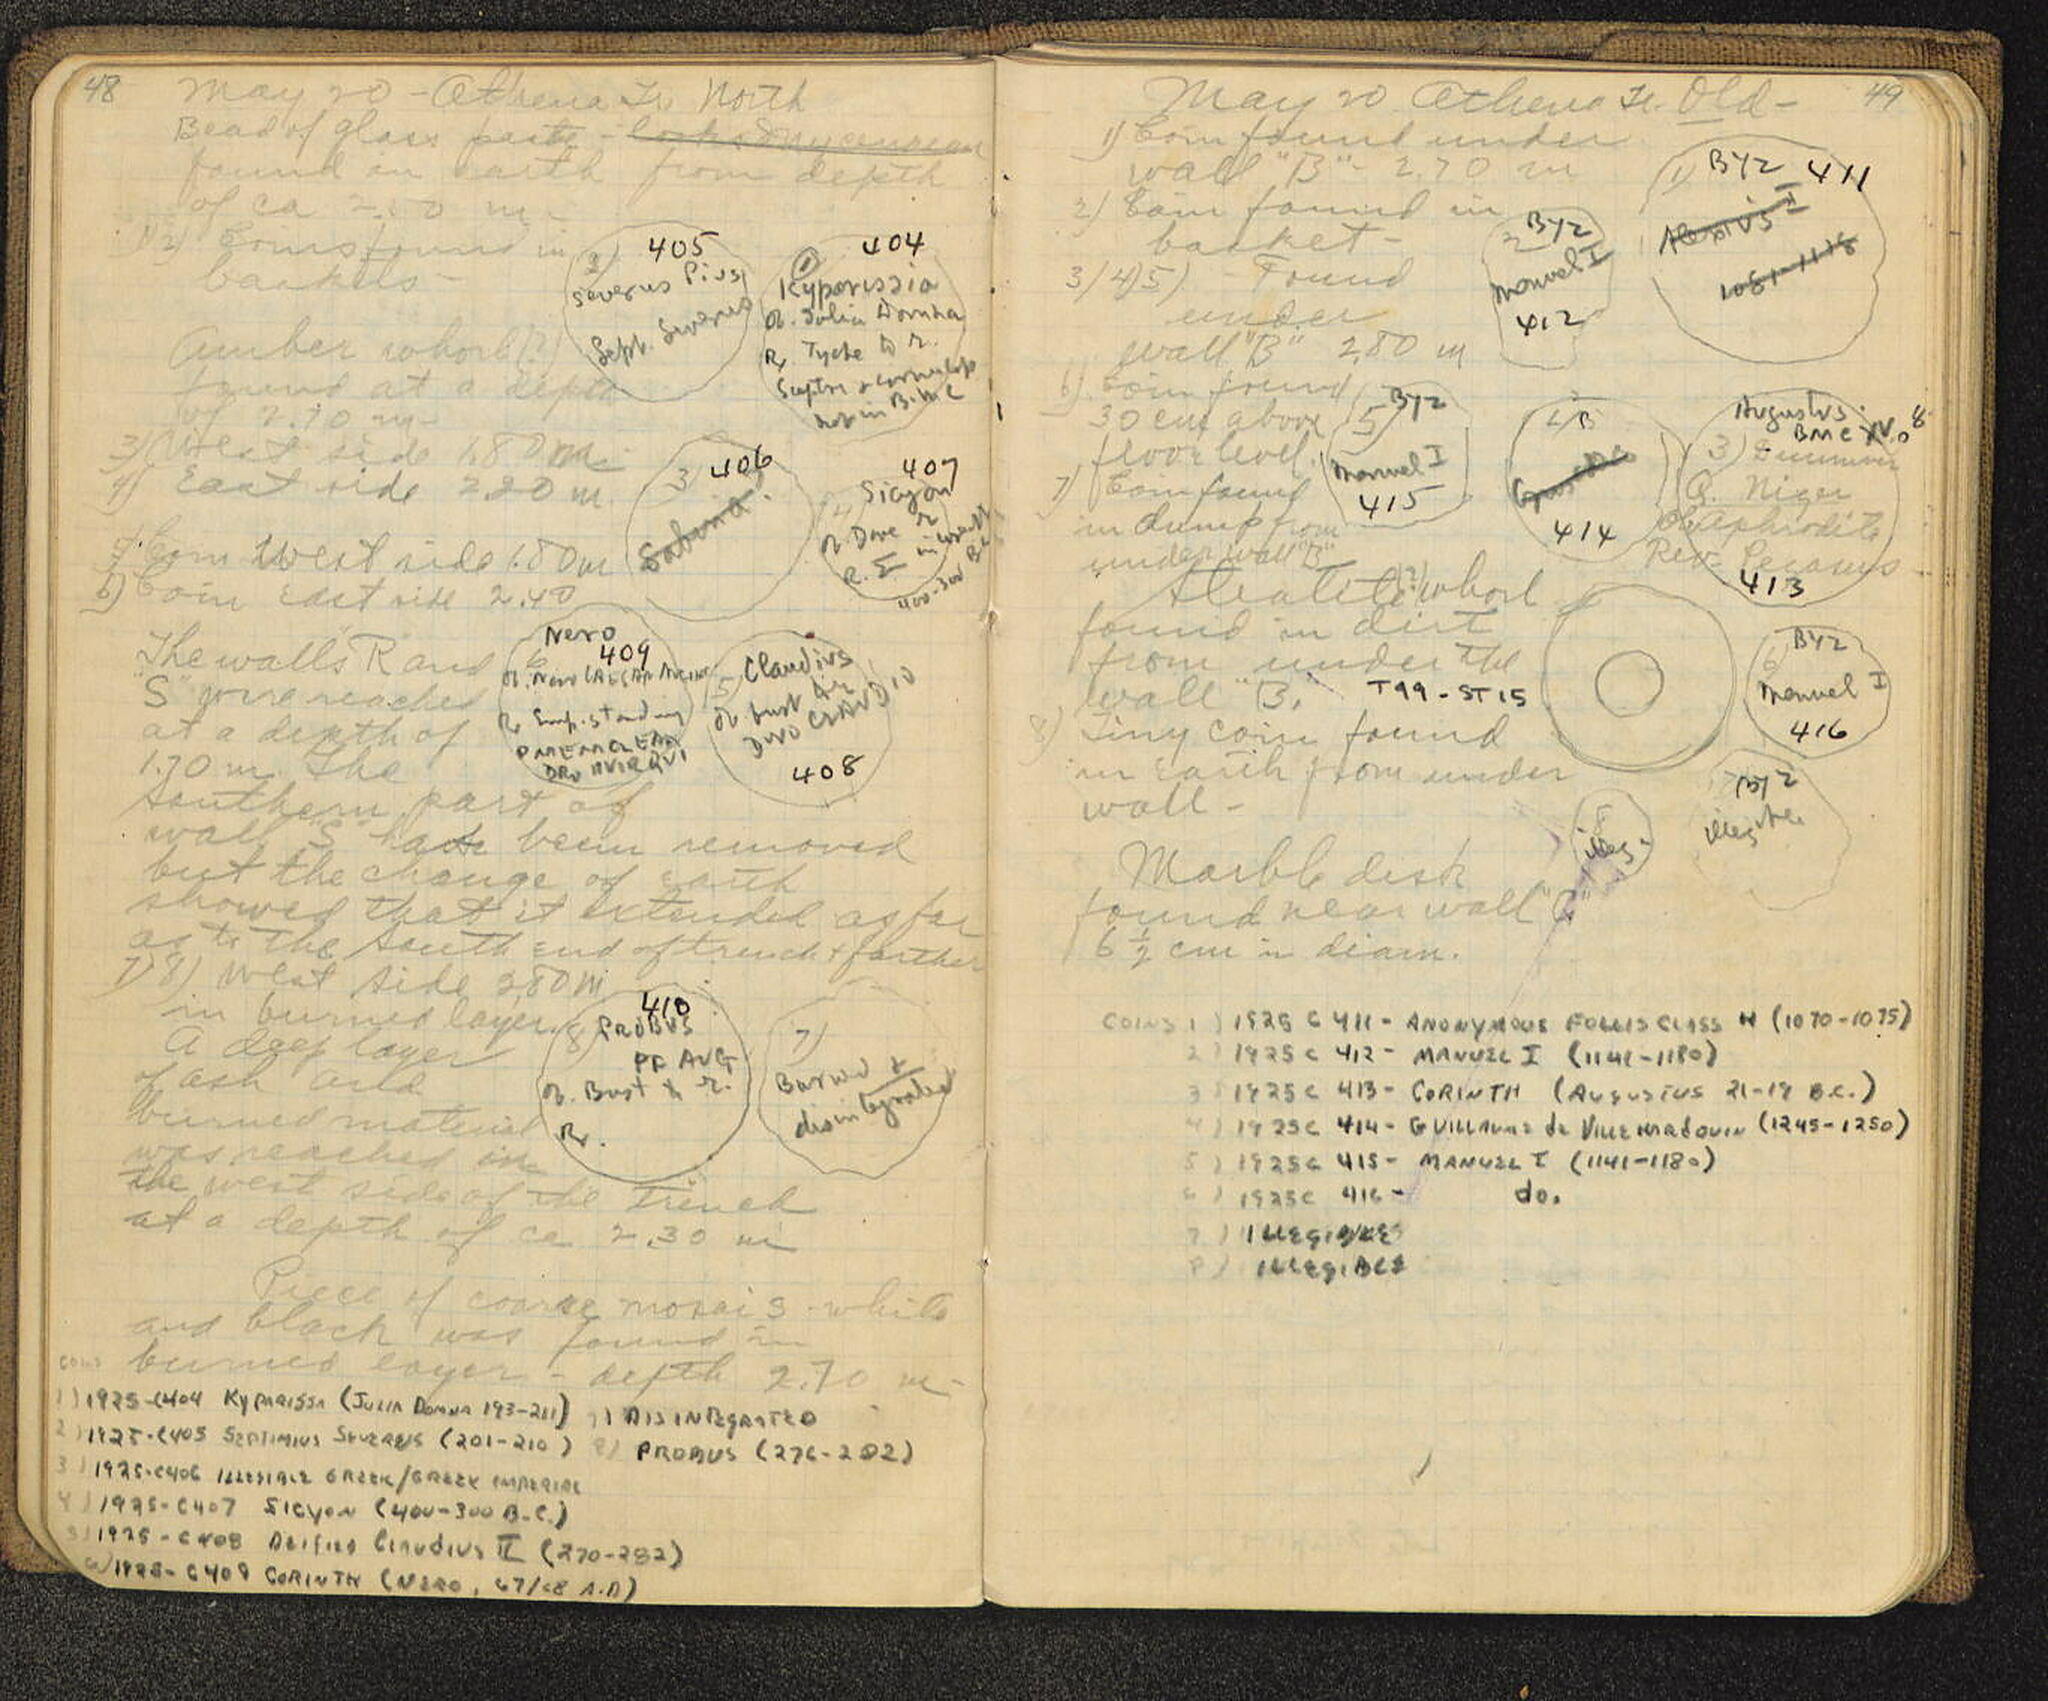 48
May 20 - Athena Tr. North
Bead of glass paste - looks Mycenaean
found in earth from depth
of ca 2.50 m -
1) 2) Coins found in
baskets -
2) 405
Severus Pius
Sept. Severus
1 404
Kyparissia
Ob. Julia Domna
R. Tyche to r.
Sceptre & cornucop
not in B.M.C
Amber whorl (?)
found at a depth
of 2.70 m -
3) West side 1.80 m.
4) East side 2.20 m.
3) 406
Sabina?
407
4) Sicyon
Ob. Dove r
R. Σ in wreath
400-300 B.C.
5) Coin West side 1.80 m
6) Coin East side 2.40
Nero
6 409
Ob. Nero CAESAR
R. Emp. standing
5) Claudius
Ob. bust to r
DIVO CLAVDIO
408
The walls "R" and
"S" were reached
at a depth of
1.70 m. The
southern part of
wall "S" had been removed
but the change of earth
showed that it extended as far
as to the south end of trench & farther
7) 8) West side 2.80 m
in burned layer.
410
8) PROBUS
PF AVG
Ob. Bust to r.
R.
7)
Burned &
disintegrated
A deep layer
of ash and
burned material
was reached in
the west side of the trench
at a depth of ca 2.30 m
Piece of coarse mosaic - white
and black was found in
burned layer - depth 2.70 m -
COINS
1) 1925-C404 KYPARISSIA (JULIA DOMNA 193-211)
2) 1925-C405 SEPTIMIUS SEVERUS (201-210)
3) 1925-C406 ILLEGIBLE GREEK/GREEK IMPERIAL
4) 1925-C407 SICYON (400-300 B.C.)
5) 1925-C408 DEIFIED CLAUDIUS II (270-282)
6) 1925-C409 CORINTH (NERO, 67/68 A.D)
7) DISINTEGRATED
8) PROBUS (276-282)
May 20 Athena Tr. Old - 49
1) Coin found under
wall "B" - 2.70 m
2) Coin found in
basket -
3) 4) 5) - Found
under
wall "B" 2.80 m
1) BYZ 411
Alexius I
1081-1118
2 BYZ
Manuel I
412
6) Coin found
30 cm above
floor level.
7) Coin found
in dump from
under wall "B"
5) BYZ
Manuel I
415
414
Augustus
BMC No 8
3) Duumvir
Q. Niger
Ob. Aphrodite
Rev. Pegasus
413
Steatite (?) whorl
found in dirt
from under the
wall "B." T99 - ST15
BYZ
6)
Manuel I
416
8) Tiny coin found
in earth from under
wall -
8
illeg.
BYZ
illegible
Marble disk
found near wall "C"
6 ½ cm in diam.
COINS 1) 1925 C 411 - ANONYMOUS FOLLIS CLASS H (1070-1075)
2) 1925 C 412 - MANUEL I (1141-1180)
3) 1925 C 413 - CORINTH (AUGUSTUS 21-19 B.C.)
4) 1925 C 414 - GUILLAUME de VILLEHARDOUIN (1245-1250)
5) 1925 C 415 - MANUEL I (1141-1180)
6) 1925 C 416 - do.
7) ILLEGIBLE
8) ILLEGIBLE